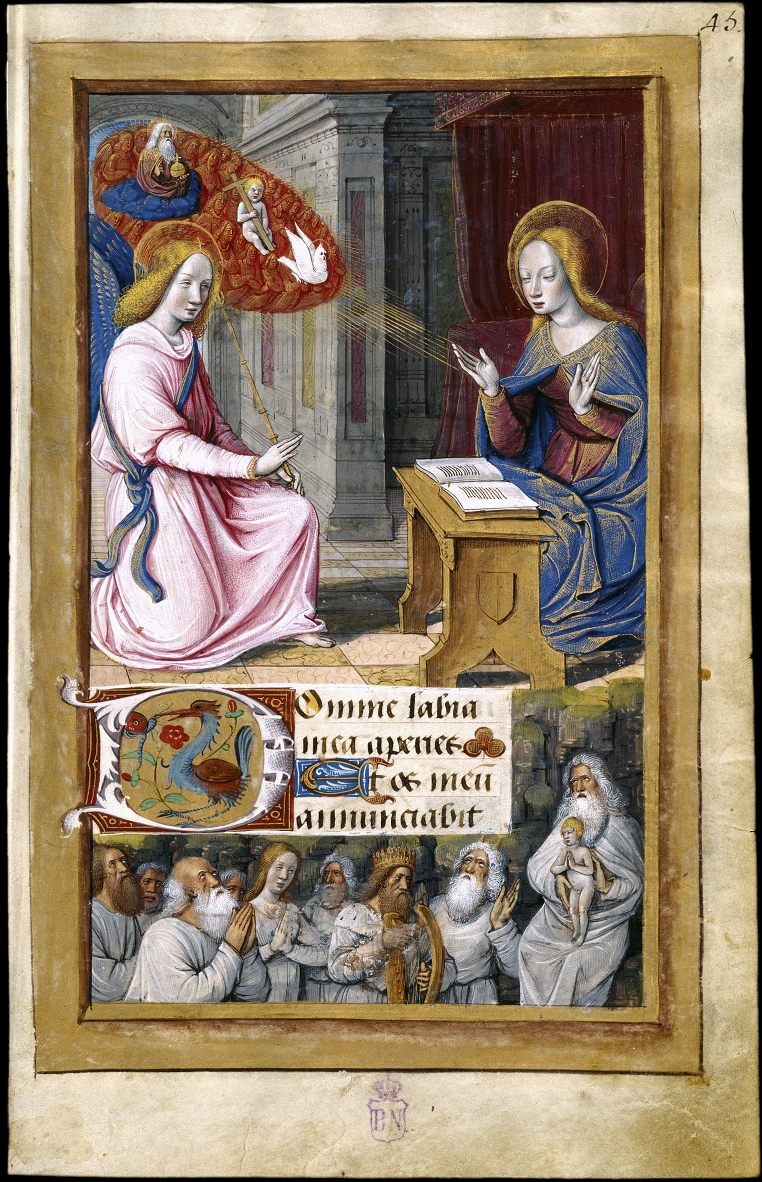 45.
Domine labia
mea aperies
Et os meū
annunciabit
BN